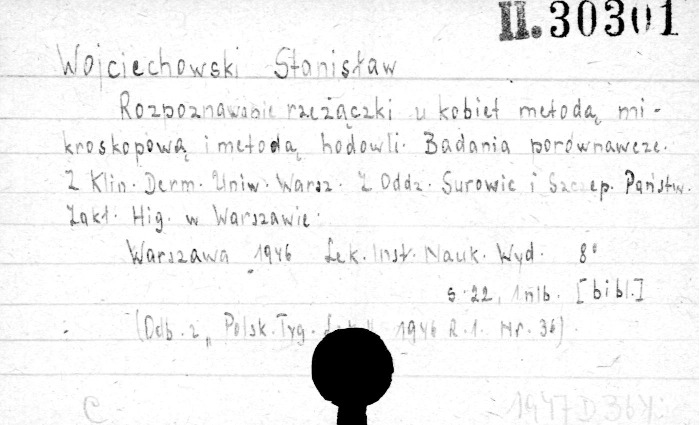 II. 30301
Wojciechowski Stanisław
Rozpoznawanie rzeżączki u kobiet metodą mi-
kroskopową i metodą hodowli. Badania porównawcze.
Z Klin. Derm. Uniw. Warsz. Z Oddz. Surowic i Szczep. Państw.
Zakł. Hig. w Warszawie.
Warszawa 1946 Lek. Inst. Nauk. Wyd. 8°
s. 22, 1 nlb. [bibl.]
(Odb. z „Polsk. Tyg. Lek." 1946 R. 1. Nr. 36).
C 1947 D 364